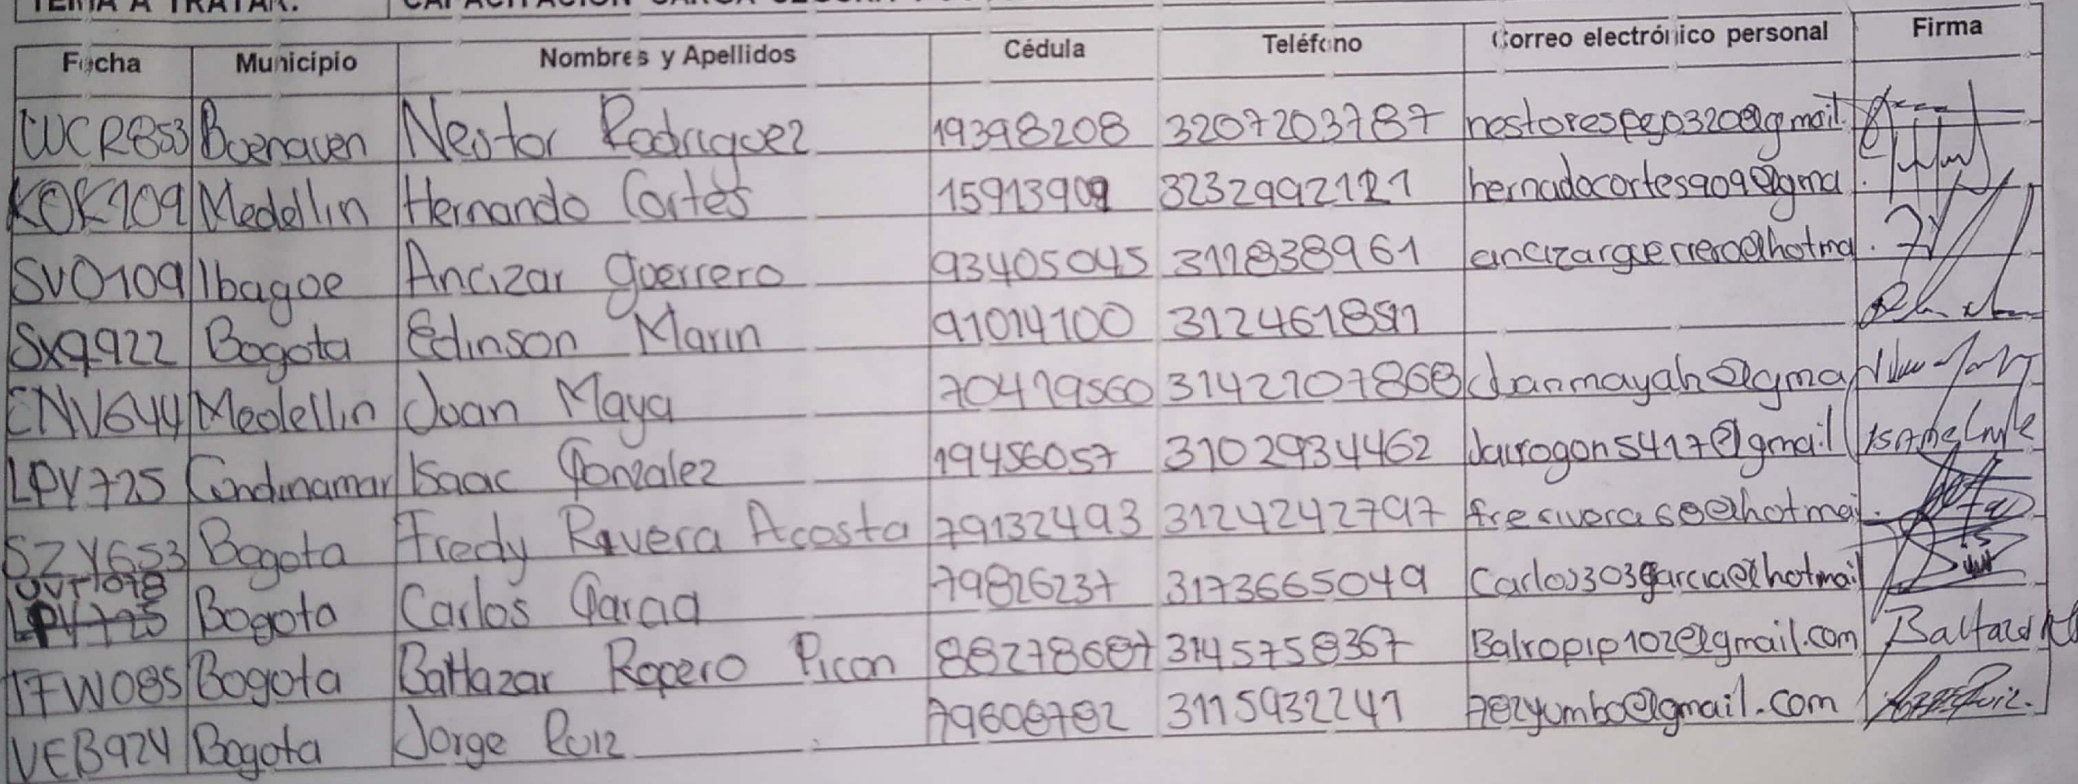 TEMA A TRATAR:
Fecha Municipio Nombres y Apellidos Cédula Teléfono Correo electrónico personal Firma
WCR853 Buenaven Nestor Rodriguez 19398208 3207203787 nestorespejo320@gmail.
KOK109 Medellin Hernando Cortes 15913909 3232992121 hernadocortes909@gma.
SVO109 Ibague Ancizar Guerrero 93405045 3118838961 ancizarguerrero@hotma.
SXQ922 Bogota Edinson Marin 91014100 3124618591
CNV644 Medellin Juan Maya 70419560 3142107868 Juanmayah@gma
LPV725 Cundinamar Isaac Gonzalez 19456057 3102934462 Jairogon5417@gmail
SZY653 Bogota Fredy Rivera Acosta 79132493 3124242797 freriveras60@hotmai.
UVT078
LPV725 Bogota Carlos Garcia 79826237 3173665049 Carlos303garcia@hotmail
TFW085 Bogota Baltazar Ropero Picon 88278687 3145758367 Balropip102@gmail.com
VEB924 Bogota Jorge Ruiz 79608782 3115932241 782yumbo@gmail.com